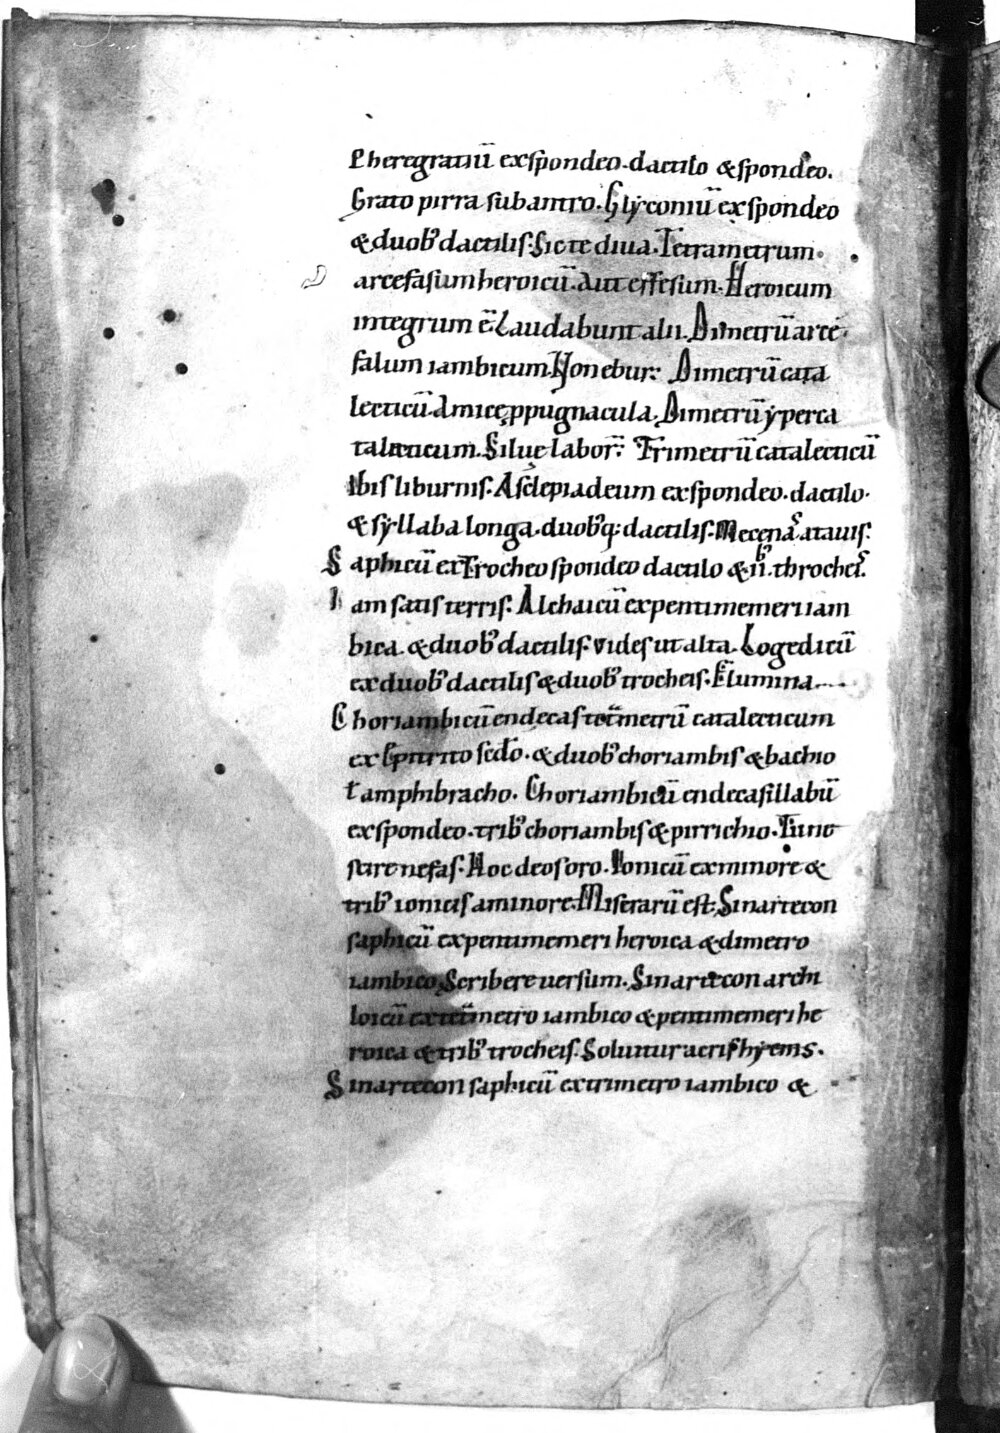 Pheregratiū exspondeo.dactilo &spondeo.
Grato pirra subantro.Gliconiū exspondeo
&duob᷒ dactilis.Sic te diua.Tetrametrum
arcefasum heroicū.Aut effesum.Heroicum
integrum ē Laudabunt alii.Dimetrū arce
falum iambicum.Non ebur: Dimetrū cata
lecticū.Amicę ppugnacula.Dimetrū yperca
talecticum.Siluę labor: Trimetrū catalecticū
Ibis liburnis.Asclepiadeum exspondeo.dactilo.
&syllaba longa.duob᷒q; dactilis.Mecenas atauis.
Saphicū ex Trocheo spondeo dactilo &ii.throcheis.
Iam satis terris.Alchaicū expentimemeri iam
bica.&duob᷒ dactilis.Vides ut alta.Logedicū
exduob᷒ dactilis &duob᷒ trocheis.Flumina....
Choriambicū endecas tetmetrū catalecticum
ex Epitrito sēdo.&duob᷒ choriambis &bachio
t amphibracho. Choriambicū endecasillabū
exspondeo.trib᷒ choriambis &pirrichio.Tu ne
scire nefas.Hoc deos oro.Ionicū exminore &
trib᷒ ionicis aminore.Miserarū est.Sinartecon
saphicū expentimemeri heroica &dimetro
iambico.Scribere uersum.Sinartecon archi
loicū ex tetmetro iambico &pentimemeri he
roica &trib᷒ trocheis.Soluitur acris hyems.
Sinartecon saphicū extrimetro iambico &